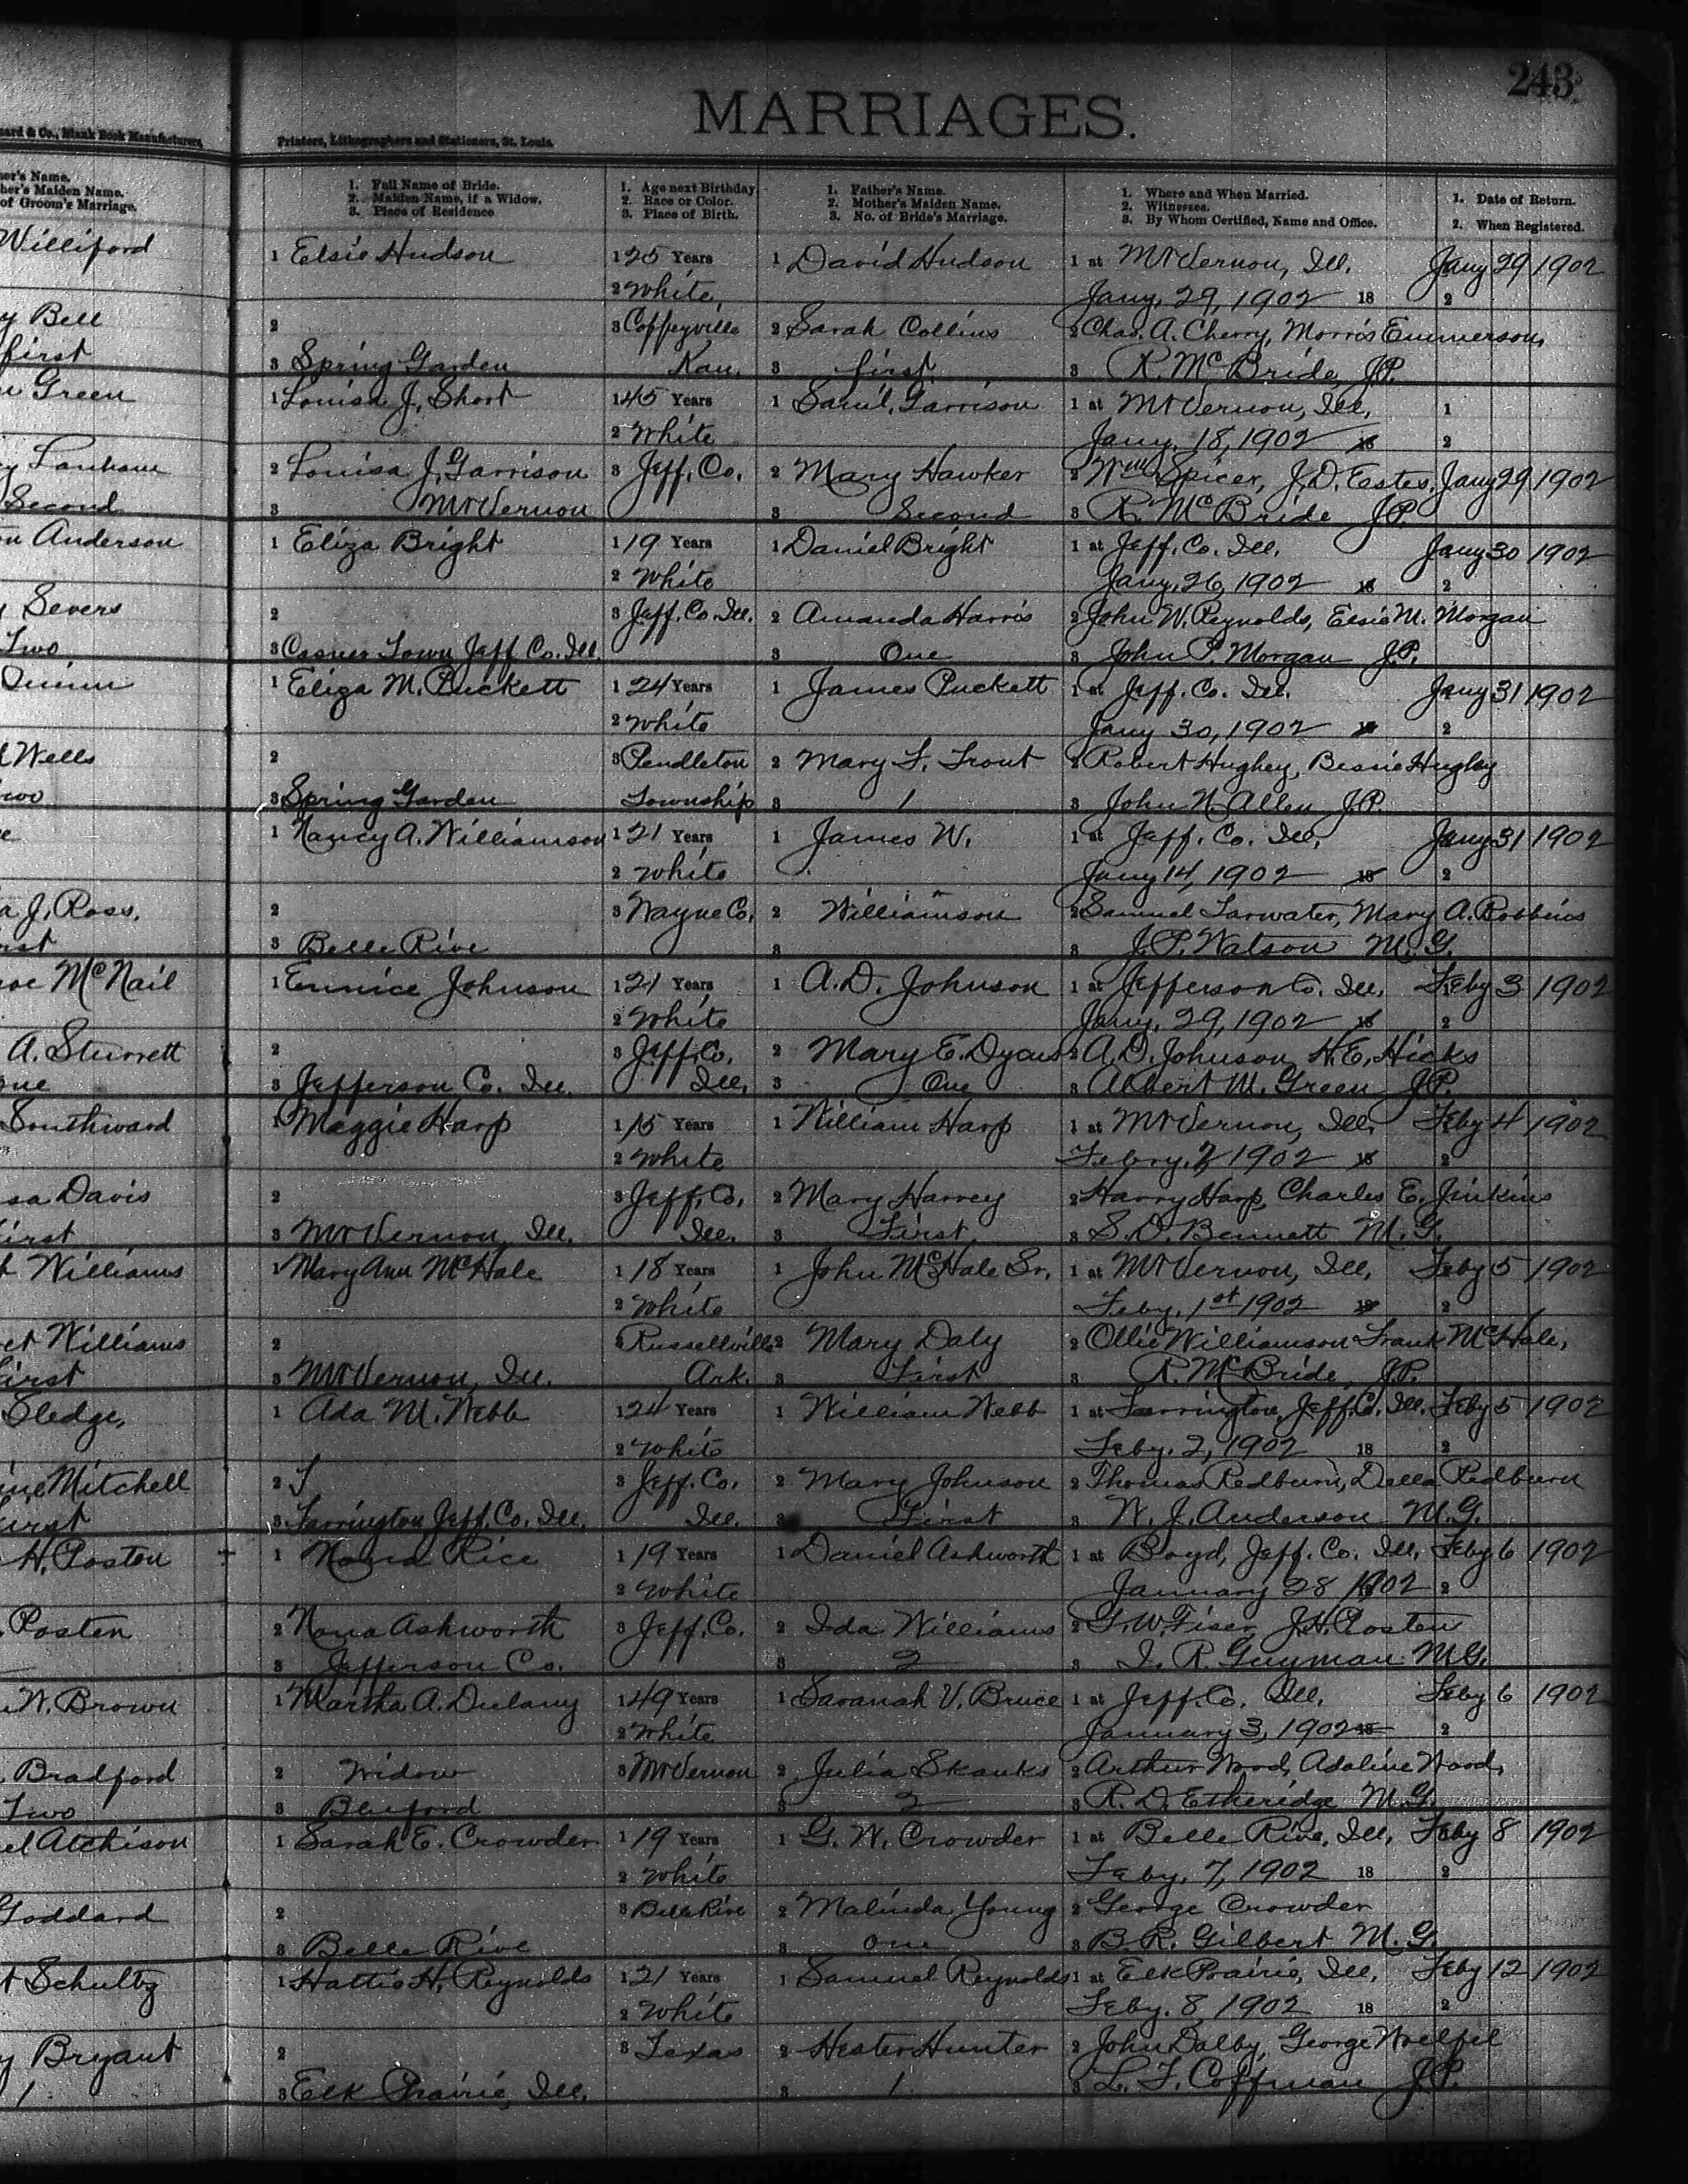 243
MARRIAGES.
& Co., Blank Book Manufacturers,
Printers, Lithographers and Stationers, St. Louis.
Name.
Maiden Name.
of Groom's Marriage.
1. Full Name of Bride.
2. Maiden Name, if a Widow.
3. Place of Residence
1. Age next Birthday.
2. Race or Color.
3. Place of Birth.
1. Father's Name.
2. Mother's Maiden Name.
3. No. of Bride's Marriage.
1. Where and When Married.
2. Witnesses.
3. By Whom Certified, Name and Office.
1. Date of Return.
2. When Registered.
Williford
1 Elsie Hudson 1 25 Years 1 David Hudson 1 at Mt Vernon, Ill. Jany 29 1902
2 White, Jany. 29, 1902 18 2
Bell 2 3 Coffeyville 2 Sarah Collins 2 Chas. A. Cherry, Morris Emmerson,
first 3 Spring Garden Kan. 3 first 3 R. McBride, J.P.
Green 1 Louisa J. Short 1 45 Years 1 Saml. Garrison 1 at Mt Vernon, Ill, 1
2 White Jany. 18, 1902 18 2
Lanham 2 Louisa J. Garrison 3 Jeff. Co. 2 Mary Hawker 2 Wm Spicer, J.D. Estes, Jany 29 1902
Second 3 Mt Vernon 3 Second 3 R. McBride J.P.
Anderson 1 Eliza Bright 1 19 Years 1 Daniel Bright 1 at Jeff. Co. Ill. Jany 30 1902
2 White Jany. 26, 1902 18 2
Severs 2 3 Jeff. Co. Ill. 2 Amanda Harris 2 John W. Reynolds, Elsie M. Morgan
Two 3 Casner Town Jeff Co. Ill. 3 One 3 John P. Morgan J.P.
1 Eliza M. Puckett 1 24 Years 1 James Puckett 1 at Jeff. Co. Ill. Jany 31 1902
2 White Jany 30, 1902 18 2
Wells 2 3 Pendleton 2 Mary F. Trout 2 Robert Hughey, Bessie Hughy
3 Spring Garden Township 3 1 3 John N. Allen J.P.
1 Nancy A. Williamson 1 21 Years 1 James W. 1 at Jeff. Co. Ill, Jany 31 1902
2 White Jany 14, 1902 18 2
J. Ross. 2 3 Wayne Co, 2 Williamson 2 Samuel Tarwater, Mary A. Robbins
3 Belle Rive 3 3 J.P. Watson M.G.
McNail 1 Eunice Johnson 1 21 Years 1 A.D. Johnson 1 at Jefferson Co. Ill. Feby 3 1902
2 White Jany. 29, 1902 18 2
A. Sturrett 2 3 Jeff. Co. 2 Mary E. Dycus 2 A.D. Johnson, H.E. Hicks
3 Jefferson Co. Ill. Ill. 3 One 3 Albert W. Green J.P.
Southward 1 Maggie Harp 1 15 Years 1 William Harp 1 at Mt Vernon, Ill, Feby 4 1902
2 White Febry. 2, 1902 18 2
Davis 2 3 Jeff. Co. 2 Mary Harvey 2 Harry Harp, Charles E. Jinkins
first 3 Mt Vernon, Ill. Ill. 3 First. 3 S.D. Bennett M.G.
Williams 1 Mary Ann McHale 1 18 Years 1 John McHale Sr. 1 at Mt Vernon, Ill, Feby 5 1902
2 White Feby. 1st 1902 18 2
Williams 2 3 Russellville 2 Mary Daly 2 Ollie Williamson Frank McHale,
First 3 Mt Vernon, Ill. Ark. 3 First 3 R. McBride, J.P.
Sledge, 1 Ada M. Webb 1 24 Years 1 William Webb 1 at Farrington, Jeff. Co. Ill. Feby 5 1902
2 White Feby. 2, 1902 18 2
Mitchell 2 3 Jeff. Co. 2 Mary Johnson 2 Thomas Redburn, Della Redburn
First 3 Farrington, Jeff. Co. Ill. Ill. 3 First 3 W. J. Anderson M.G.
H. Posten 1 Nona Rice 1 19 Years 1 Daniel Ashworth 1 at Boyd, Jeff. Co. Ill. Feby 6 1902
2 White January 28 1902 2
Posten 2 Nona Ashworth 3 Jeff. Co. 2 Ida Williams 2 G.W. Fiser, J.H. Posten
3 Jefferson Co. 3 2 3 I. R. Guyman M.G.
W. Brown 1 Martha A. Dulany 1 49 Years 1 Savanah V. Bruce 1 at Jeff. Co. Ill. Feby 6 1902
2 White January 3, 1902 18 2
Bradford 2 Widow 3 Mt Vernon 2 Julia Skanks 2 Arthur Wood, Adaline Wood,
Two 3 Bluford 3 2 3 R. D. Etheridge M.G.
Atchison 1 Sarah E. Crowder 1 19 Years 1 G. W. Crowder 1 at Belle Rive, Ill, Feby 8 1902
2 White Feby. 7, 1902 18 2
Goddard 2 3 Belle Rive 2 Malinda Young 2 George Crowder
3 Belle Rive 3 One 3 B.R. Gilbert M.G.
Schultz 1 Hattie H. Reynolds 1 21 Years 1 Samuel Reynolds 1 at Elk Prairie, Ill, Feby 12 1902
2 White Feby. 8, 1902 18 2
Bryant 2 3 Texas 2 Hester Hunter 2 John Dalby, George Woelfel
1 3 Elk Prairie, Ill. 3 1 3 L. F. Coffman J.P.